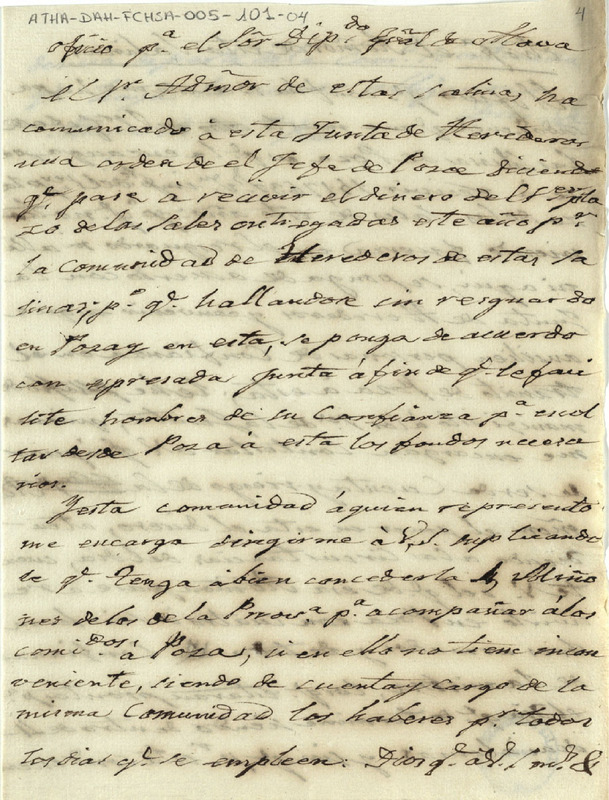 ATHA-DAH-FCHSA-005-101-04
4
oficio pª el Sôr Dipdo Jral de Alava
El Pr Admor de estas salinas ha
comunicado à esta Junta de Herederos
una orden de el Jefe de Poza diciendo
qe. pase à recivir el dinero del 1er pla
zo de las sales entregadas este año pr.
la comunidad de Herederos de estas sa
linas; po qe. hallandose sin resguardo
en Poza y en esta, se ponga de acuerdo
con espresada Junta á fin de qe. le faci
lite hombres de su confianza pª escol
tar desde Poza à esta los fondos necesa
rios.
Y esta comunidad á quien represento
me encarga dirigirme à V.S. suplicando
le qe. tenga à bien concederla Miño
nes de los de la Provª. pª acompañar à los
comidos. à Poza, si en ello no tiene incon
veniente, siendo de cuenta y cargo de la
misma Comunidad los haberes pr. todos
los dias qe. se empleen. Dios ge. à V.S. ms. &